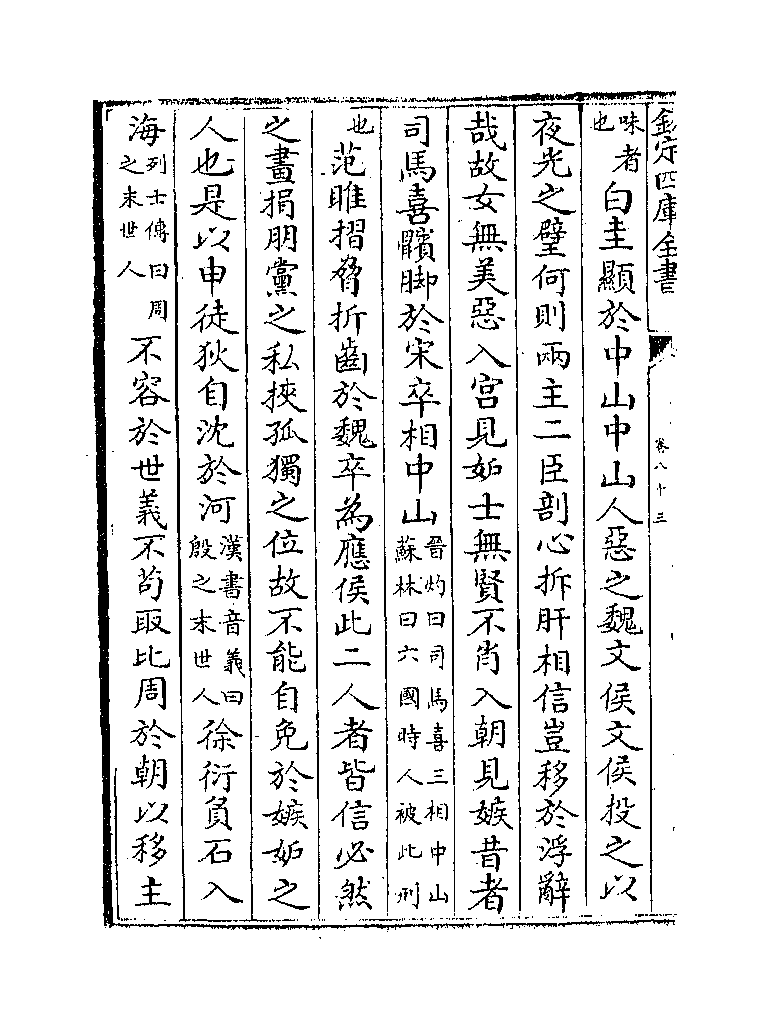 欽定四庫全書
卷八十三
味者也白圭顯於中山中山人惡之魏文侯文侯投之以
夜光之璧何則兩主二臣剖心拆肝相信豈移於浮辭
哉故女無美惡入宫見妬士無賢不肖入朝見嫉昔者
司馬喜臏脚於宋卒相中山晉灼曰司馬喜三相中山蘇林曰六國時人被此刑
也范雎摺脅折齒於魏卒為應侯此二人者皆信必然
之畫捐朋黨之私挾孤獨之位故不能自免於嫉妬之
人也是以申徒狄自沈於河漢書音義曰殷之末世人徐衍負石入
海列士傳曰周之末世人不容於世義不苟取比周於朝以移主